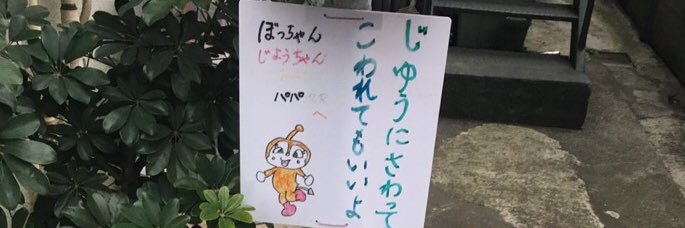 じゆうにさわって
こわれてもいいよ
ぼっちゃん
じょうちゃん
パパ
へ